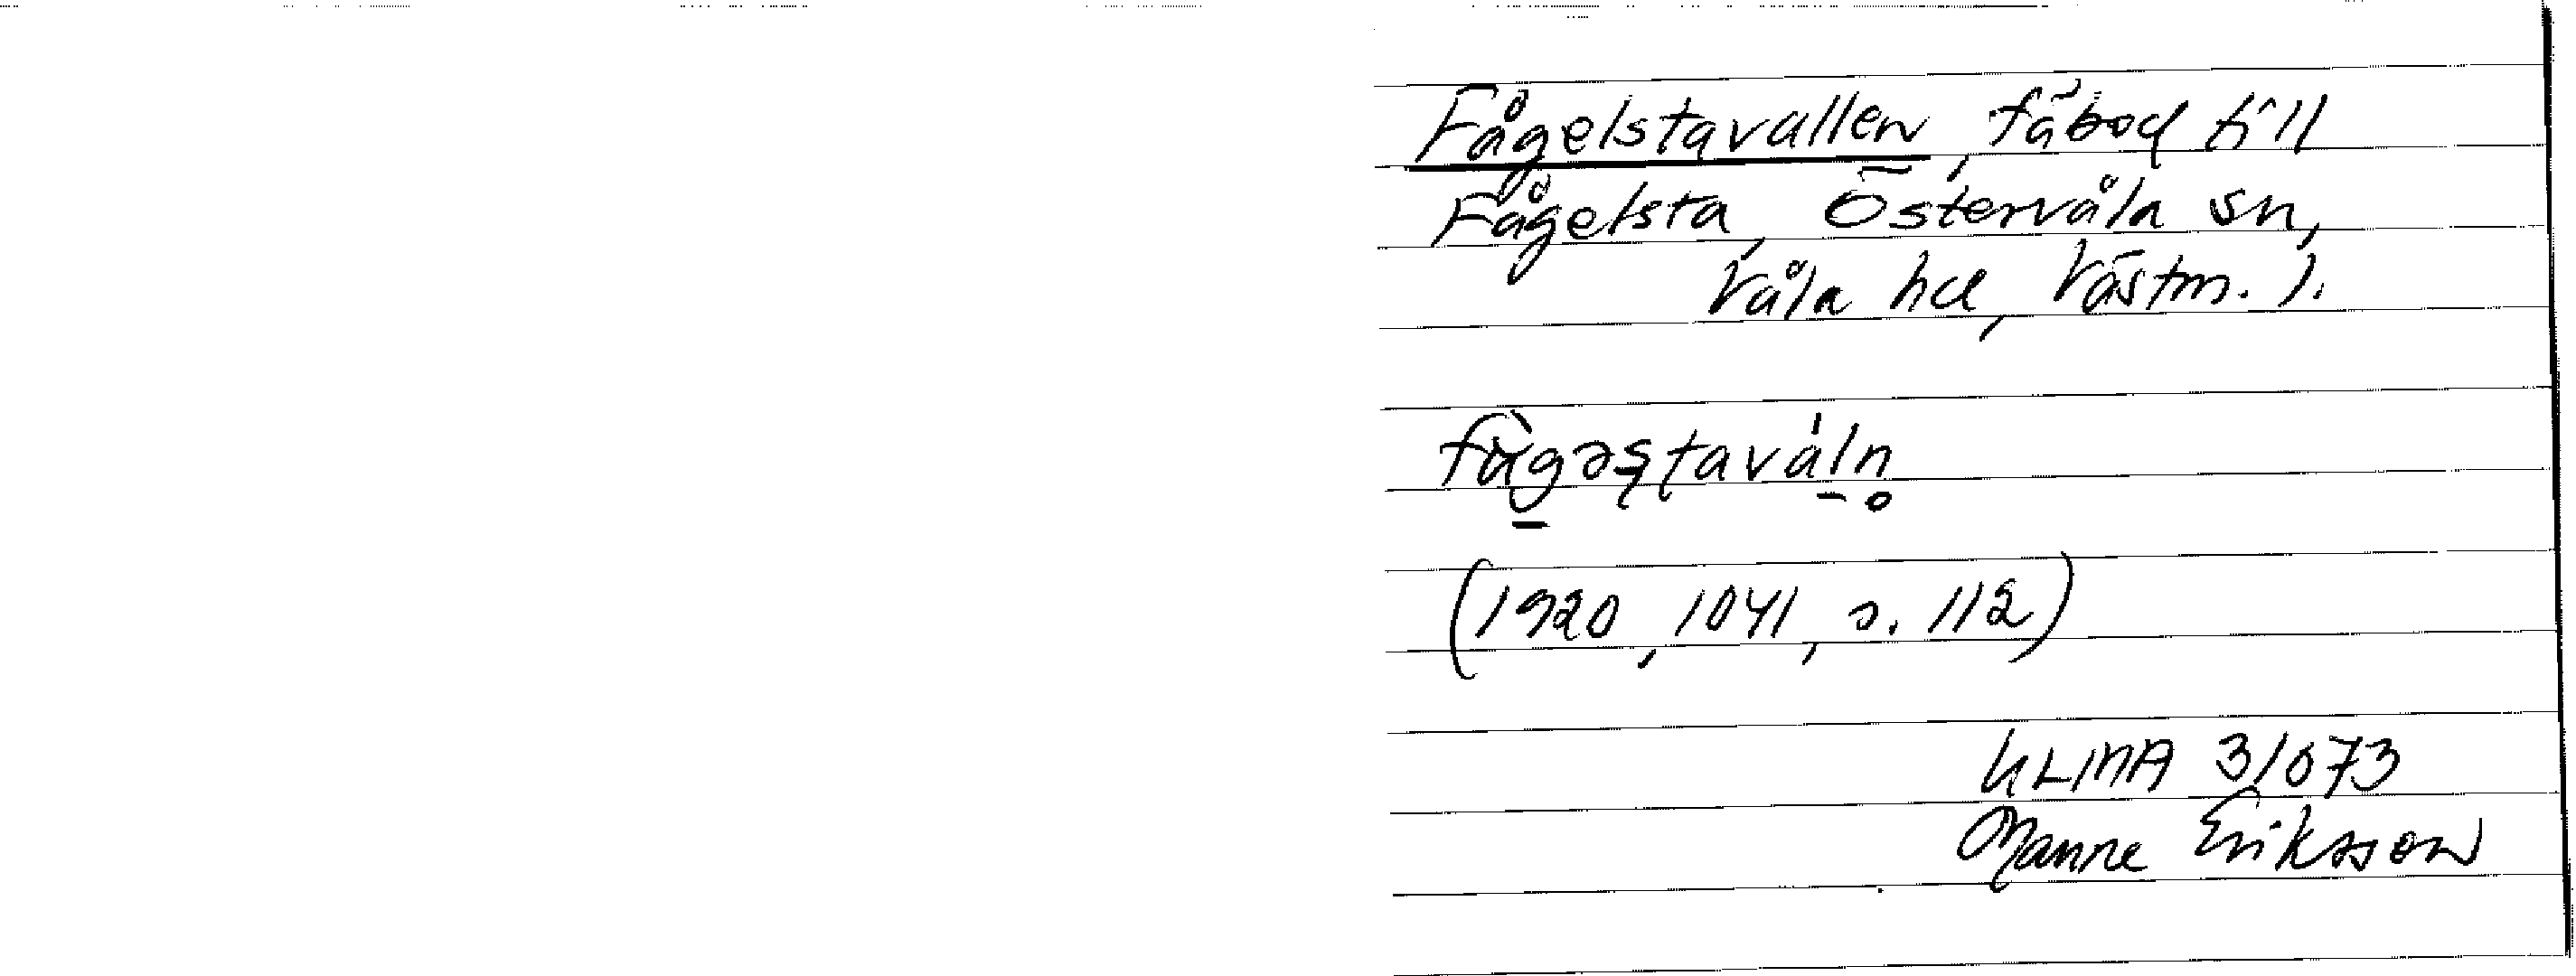 Fågelstavallen, fäbod till
Fågelsta, Östervåla sn,
Våla hd, Västm. l.
fùgəstaváln̥
(1920, 1041, s. 112)
ULMA 31073
Manne Eriksson